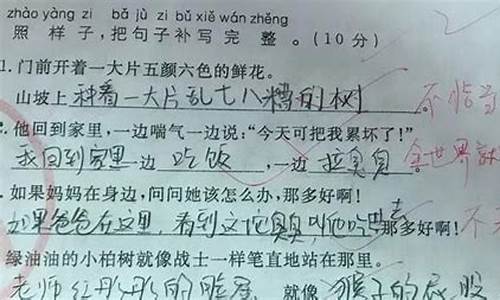 zhào yàng zi bǎ jù zi bǔ xiě wán zhěng
照样子,把句子补写完整。(10分)
1.门前开着一大片五颜六色的鲜花。
山坡上种着一大片乱七八糟的树
他回到家里,一边喘气一边说:“今天可把我累坏了!”
我回到家里一边吃饭,一边拉臭臭
.如果妈妈在身边,问问她该怎么办,那多好啊!
如果爸爸在这里,看到这坨臭臭叫他吃去那多好啊!
绿油油的小柏树就像战士一样笔直地站在那里。
老师红彤彤的脸蛋就像猴子的屁股